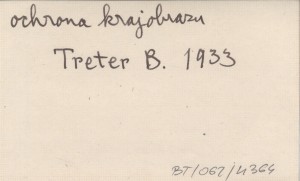 ochrona krajobrazu
Treter B. 1933
BT/067/4364